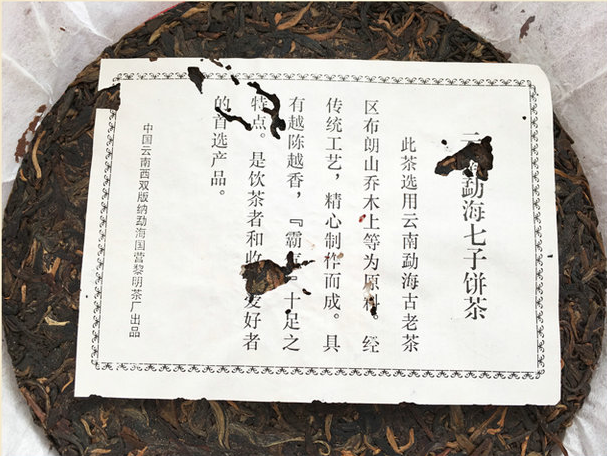 勐海七子饼茶
此茶选用云南勐海古老茶
区布朗山乔木上等为原料。经
传统工艺，精心制作而成。具
有越陈越香，『霸』十足之
特点。是饮茶者和收爱好者
的首选产品。
中国云南西双版纳勐海国营黎明茶厂出品